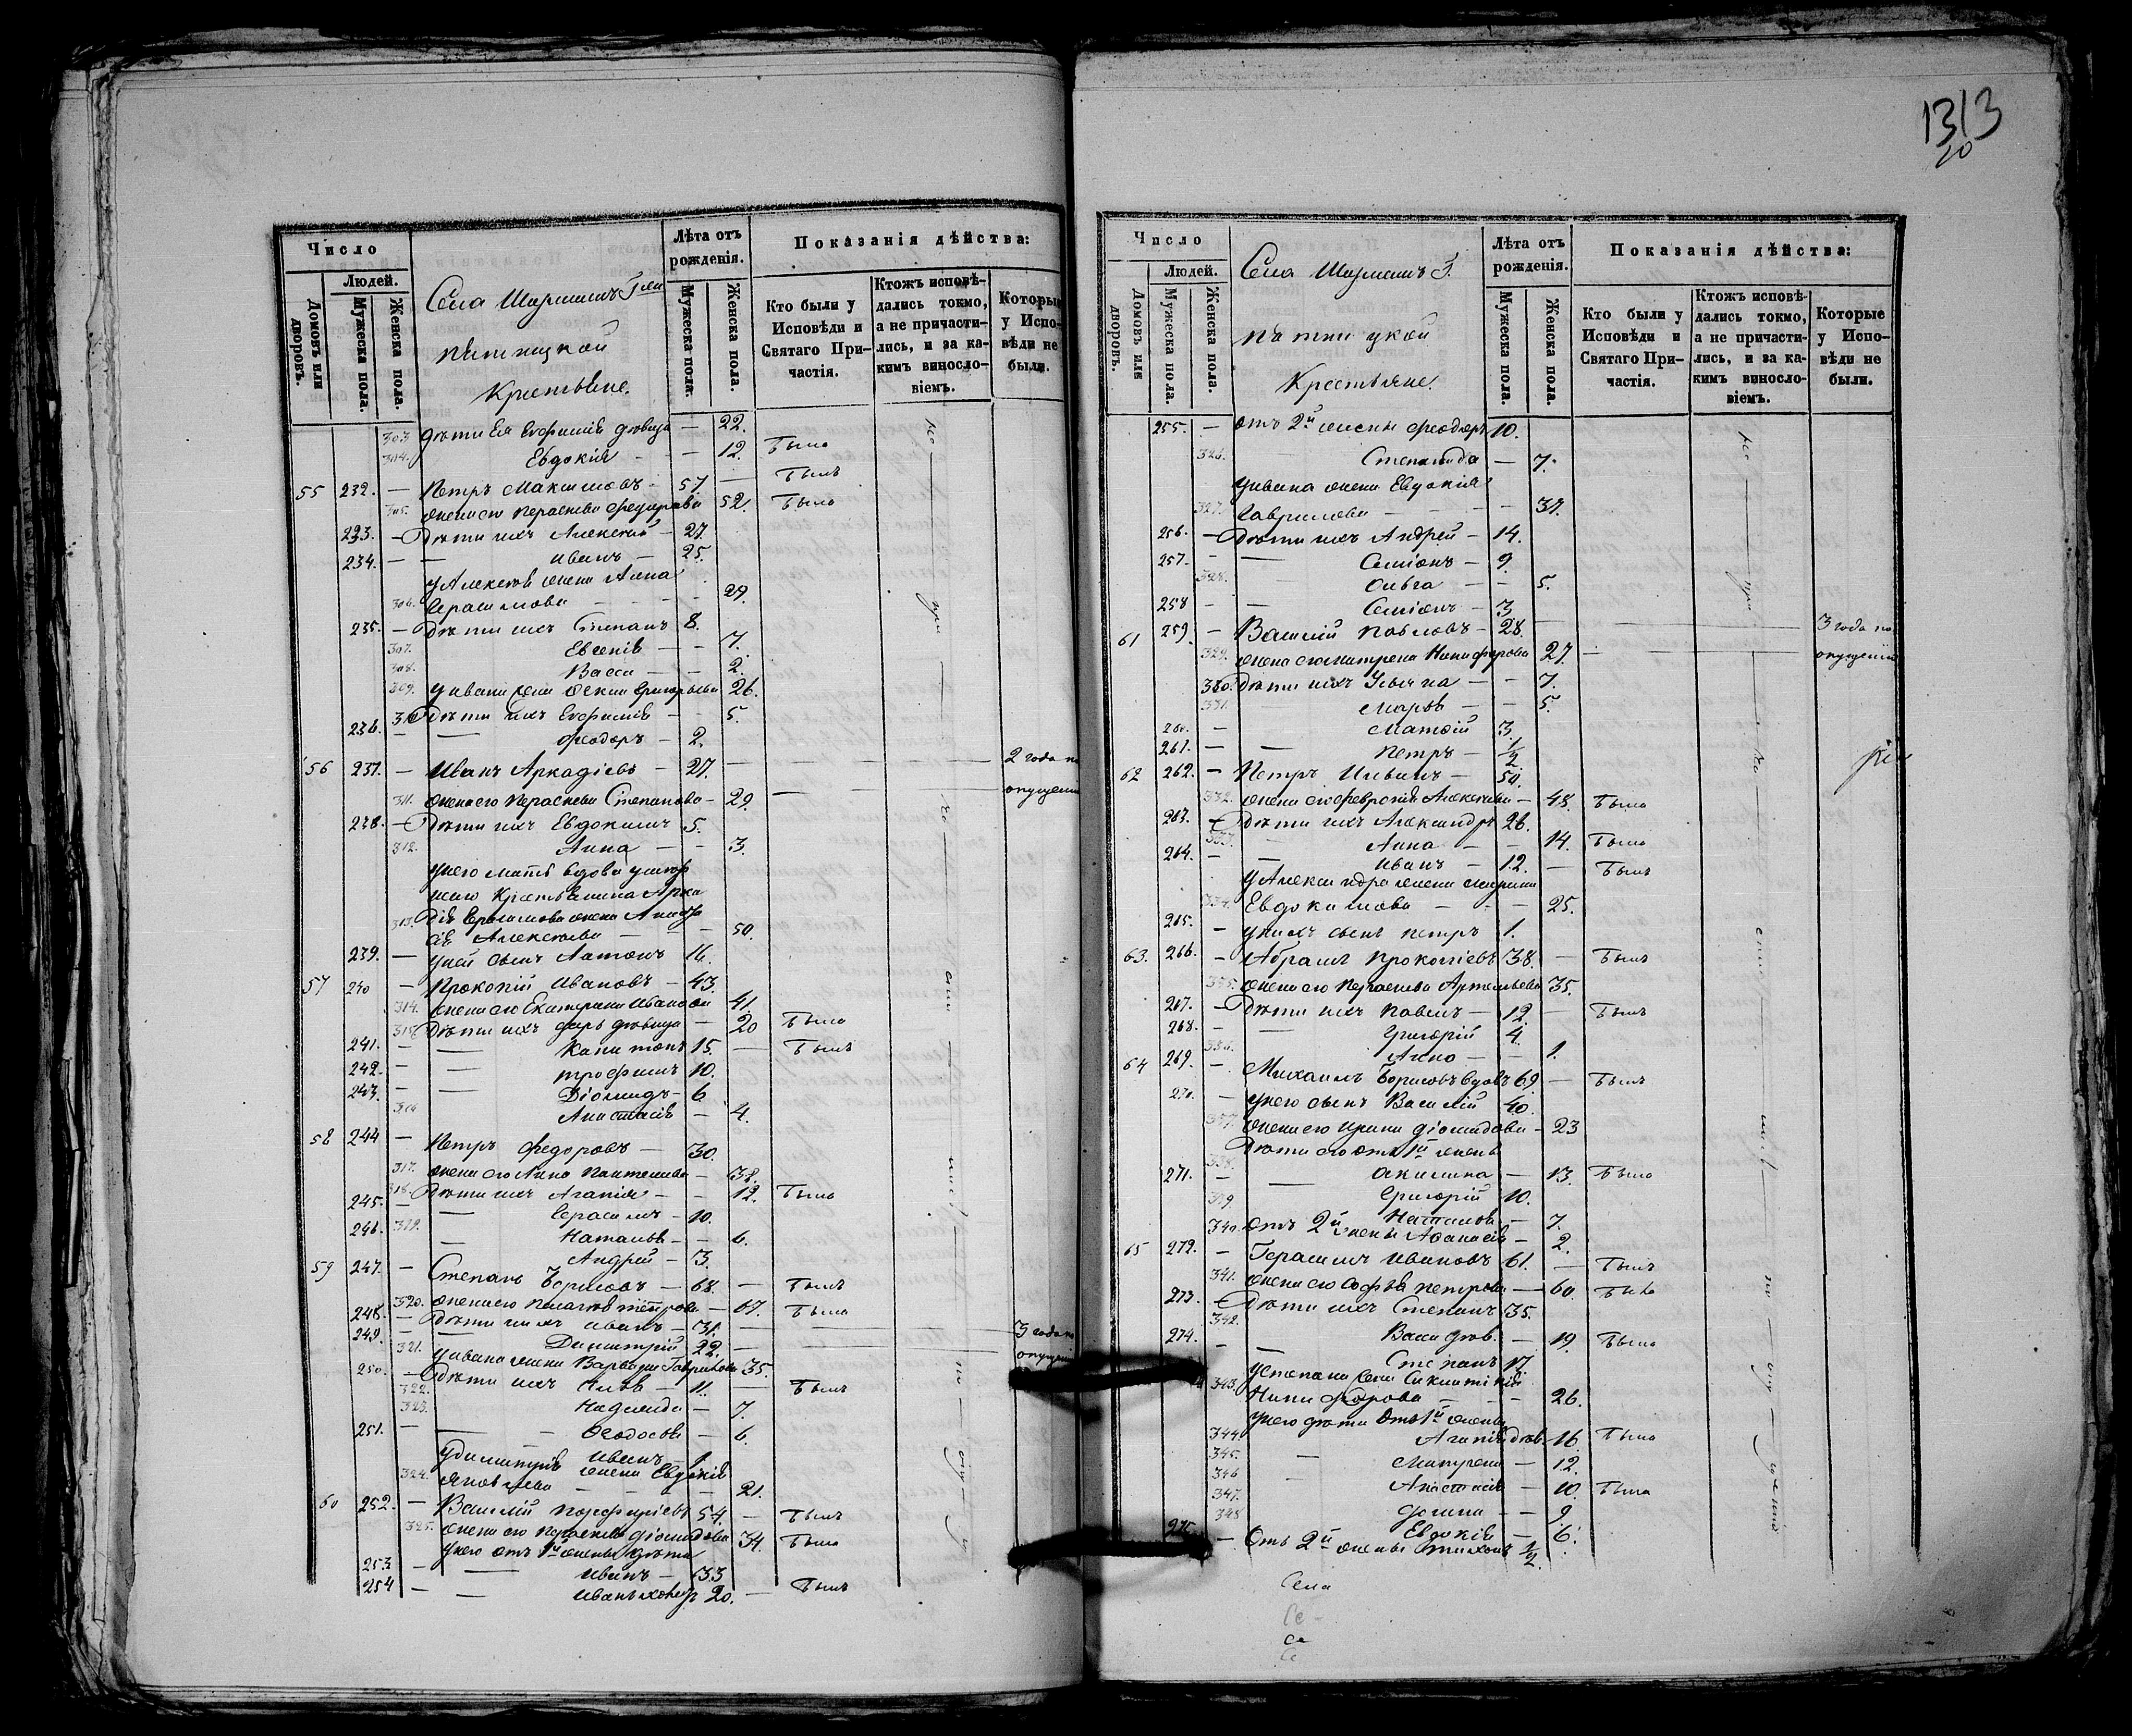 1313
20
Число
Людей.
Домовъ или дворовъ.
Мужеска пола.
Женска пола.
Лѣта отъ рожденія.
Мужеска пола.
Женска пола.
Показанія дѣйства:
Кто были у Исповѣди и Святаго Причастія.
Ктожъ исповѣдались токмо, а не причастились, и за какимъ винословіемъ.
Которые у Исповѣди не были.
Села
Крестьяне.
303 дѣти Ея Евфимія дѣвица — 22.
304. Евдокія — — 12. Была
55 232. — Петръ Максимовъ — 57 — Былъ
305. жена его Параскева Федорова 52. Была
233. — Дѣти ихъ Алексѣй — 27.
234. — — Иванъ — 25.
у Алексѣя жена Анна
306. Герасимова — — 29.
235. — Дѣти ихъ Степанъ 8.
307. Евгенія — — 7.
308. Васса — — 2.
309. у Ивана жена Григорьева 26.
310 Дѣти ихъ Евфимія — — 5.
236. — — Феодоръ — 2.
56 237. — Иванъ Аркадіевъ — 27. — — — 2 года по
311. жена его Параскева Степанова — 29. — опущенію
238. — Дѣти ихъ Евдокимъ 5.
312. Анна — — 3.
у него мать вдова умер
шаго Крестьянина Арка
313. дія Герасимова жена
Алексѣева — — 50.
239. — у ней сынъ 16.
57 240 — Прокопій Ивановъ — 43.
314. жена его Екатерина Иванова 41.
315. Дѣти ихъ дѣвица — 20 Была
241. — — Капитонъ 15. — Былъ
242. — — Трофимъ 10.
243. — — Діомидъ — 6
316 Анастасія — 4.
58 244 — Петръ Федоровъ — 30.
317. жена его Анна Пантелеева — 38.
318. Дѣти ихъ Агапія — — 12. Была
245. — — Герасимъ — 10.
246. 319. — Наталья — — 6.
Андрей — 3.
59 247. — Степанъ Борисовъ — 68. — Былъ
320. жена его Пелагея Петрова — 67. Была
248. — Дѣти ихъ Иванъ — 31. — — 3 года по
249. — — Димитрій 22. — — опущенію
321. у Ивана жена Варвара Гаврилова 35.
250. — Дѣти ихъ — 11. — Былъ
322. Надежда — 7.
323. Феодосья — 6.
251. — — Иванъ — 1.
у Димитрія жена Евдокія
324. Яковлева — — 21.
60 252. — Василій Порфиріевъ 54. — Былъ
325. жена его Параскева Діомидова 34. Была
у него отъ 1й жены дѣти
253 — — Иванъ — 33
254 — — Иванъ 20. — Былъ
Число
Людей.
Домовъ или дворовъ.
Мужеска пола.
Женска пола.
Лѣта отъ рожденія.
Мужеска пола.
Женска пола.
Показанія дѣйства:
Кто были у Исповѣди и Святаго Причастія.
Ктожъ исповѣдались токмо, а не причастились, и за какимъ винословіемъ.
Которые у Исповѣди не были.
Села
Крестьяне.
255. — отъ 2й жены Феодоръ 10.
326. Степанида — 7.
у Ивана жена Евдокія
327. Гаврилова — — — 31.
256. — Дѣти ихъ Андрей — 14.
257. — — Симіонъ — 9.
328. Ольга — — 5.
258 — — Симіонъ — 3
61 259. — Василій Павловъ — 28. — — 3 года по
329. жена его Матрена Никифорова 27. — опущенію
330. Дѣти ихъ Ульяна — — 7.
331. Марья — — 5.
260. — Матвій 3.
261. — — Петръ — 1/2
62 262. — Петръ — 50.
332. жена его Февронія Алексѣева — 48. Была
263. — Дѣти ихъ Александръ 26.
333. Анна — — 14. Была
264. — — Иванъ — 12. — Былъ
у Александра жена
334. Евдокимова — — — 25.
265. — у нихъ сынъ Петръ 1.
63. 266. — Абрамъ Прокопіевъ 38. — Былъ
335. жена его Параскева Артемьева 35.
267. — Дѣти ихъ Павелъ — 12. — Былъ
268. — — Григорій 4.
336. Анна — — 1.
64 269. — Михаилъ Борисовъ вдовъ 69 — Былъ
270. — у него сынъ Василій 40.
337. жена его Ирина Діомидова — 23
Дѣти его отъ 1й жены
338. — Акилина — 13. Была
271. — Григорій 10.
339 Наталья — 7.
340. отъ 2й жены Афанасія — 2.
65 272. — Герасимъ Ивановъ 61. — Былъ
341. жена его Софья Петрова — 60. Была
273. — Дѣти ихъ Степанъ 35.
342. Васса дѣв. — 19. Была
274. — — Степанъ 17.
у Степана жена
343. Никифорова — — 26.
у него дѣти отъ 1й жены
344. Агапія дѣв. 16. Была
345. — Матрена — 12.
346 — Анастасія — 10. Была
347. Домна — — 9.
348 Евдокія — 6.
275. — Отъ 2й жены Тихонъ 1/2
Села
Се
Се